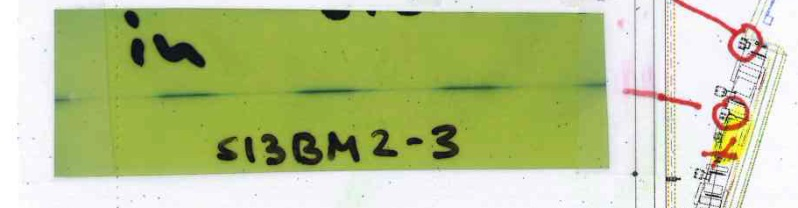 in
S13BM2-3